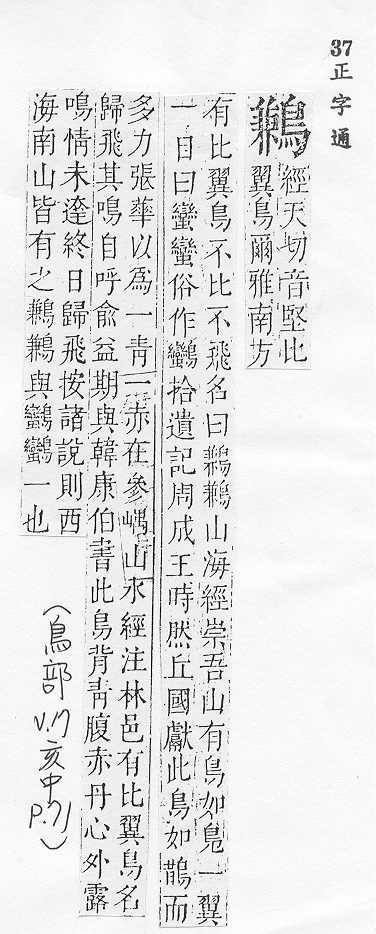 37正字通
鶼 經天切音堅比
翼鳥爾雅南方
有比翼鳥不比不飛名曰鶼鶼山海經崇吾山有鳥如鳧一翼
一目曰蠻蠻俗作鸞拾遺記周成王時燃丘國獻此鳥如鵲而
多力張華以爲一青一赤在參嵎山水經注林邑有比翼鳥名
歸飛其鳴自呼兪益期與韓康伯書此鳥背青腹赤丹心外露
鳴情未達終日歸飛按諸說則西
海南山皆有之鶼鶼與一也
(鳥部
V.17
亥中
P.71)